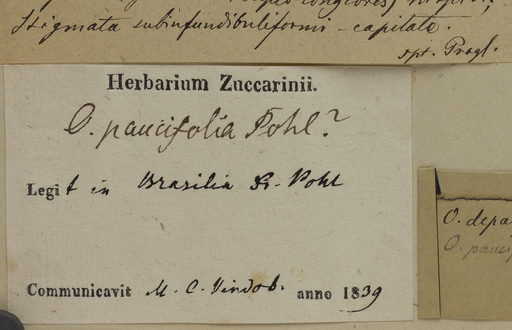 Stigmata subinfundibuliformi-capitata.
spt. Progl.
Herbarium Zuccarinii.
O. paucifolia Pohl?
Legit in Brasilia Dr. Pohl
Communicavit M. C. Vindob. anno 1839
O. depa
O. paucif